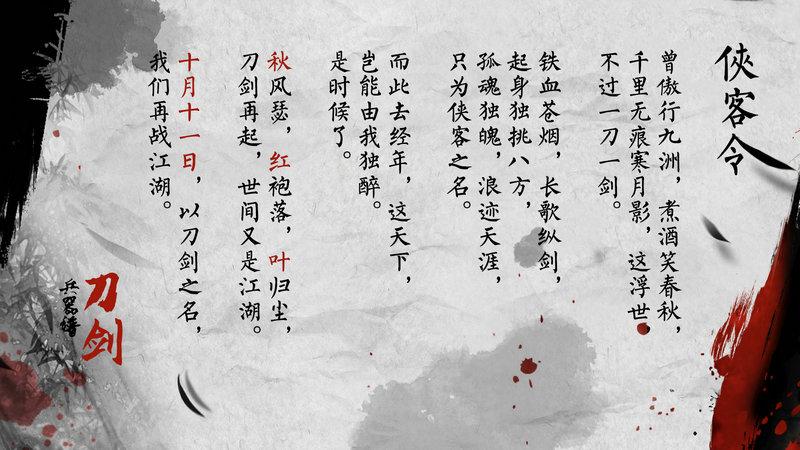 俠客令
曾傲行九洲，煮酒笑春秋，
千里无痕寒月影，这浮世，
不过一刀一剑。
铁血苍烟，长歌纵剑，
起身独挑八方，
孤魂独魄，浪迹天涯，
只为侠客之名。
而此去经年，这天下，
岂能由我独醉。
是时候了。
秋风瑟，红袍落，叶归尘，
刀剑再起，世间又是江湖。
十月十一日，以刀剑之名，
我们再战江湖。
刀剑
兵器谱